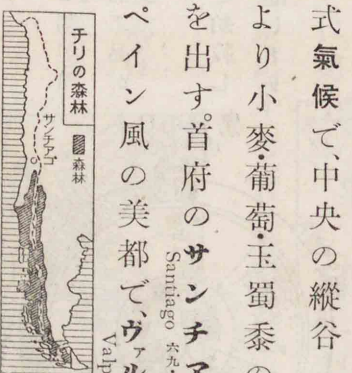 式氣候で、中央の縱谷
より小麥・葡萄・玉蜀黍の
を出す。首府のサンチア
Santiago 六九・
ペイン風の美都で、ヴァル
Valp
チリの森林
森林
サンチアゴ